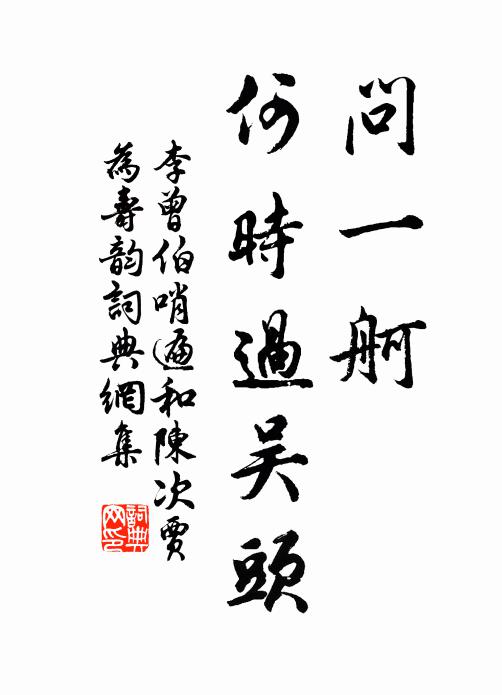 問一舸
何時過吴頭
李曾伯哨遍和陳次賈
為壽韵詞典網集
詞典
网印